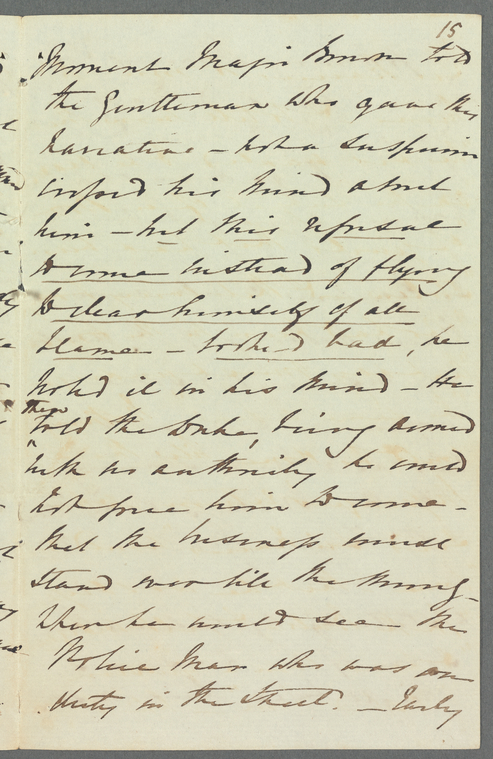 15
Moment Major Brown told
the Gentleman who gave this
narrative – not a suspicion
crossed his mind about
him – but this refusal
to come instead of flying
to clear himself of all
blame – looked bad, he
noted it in his mind – He
then
told the Duke, being armed
with no authority he could
not force him to come –
that the business must
stand over till the morng –
when he would see the
Police Man who was on
duty in the Street. – Early